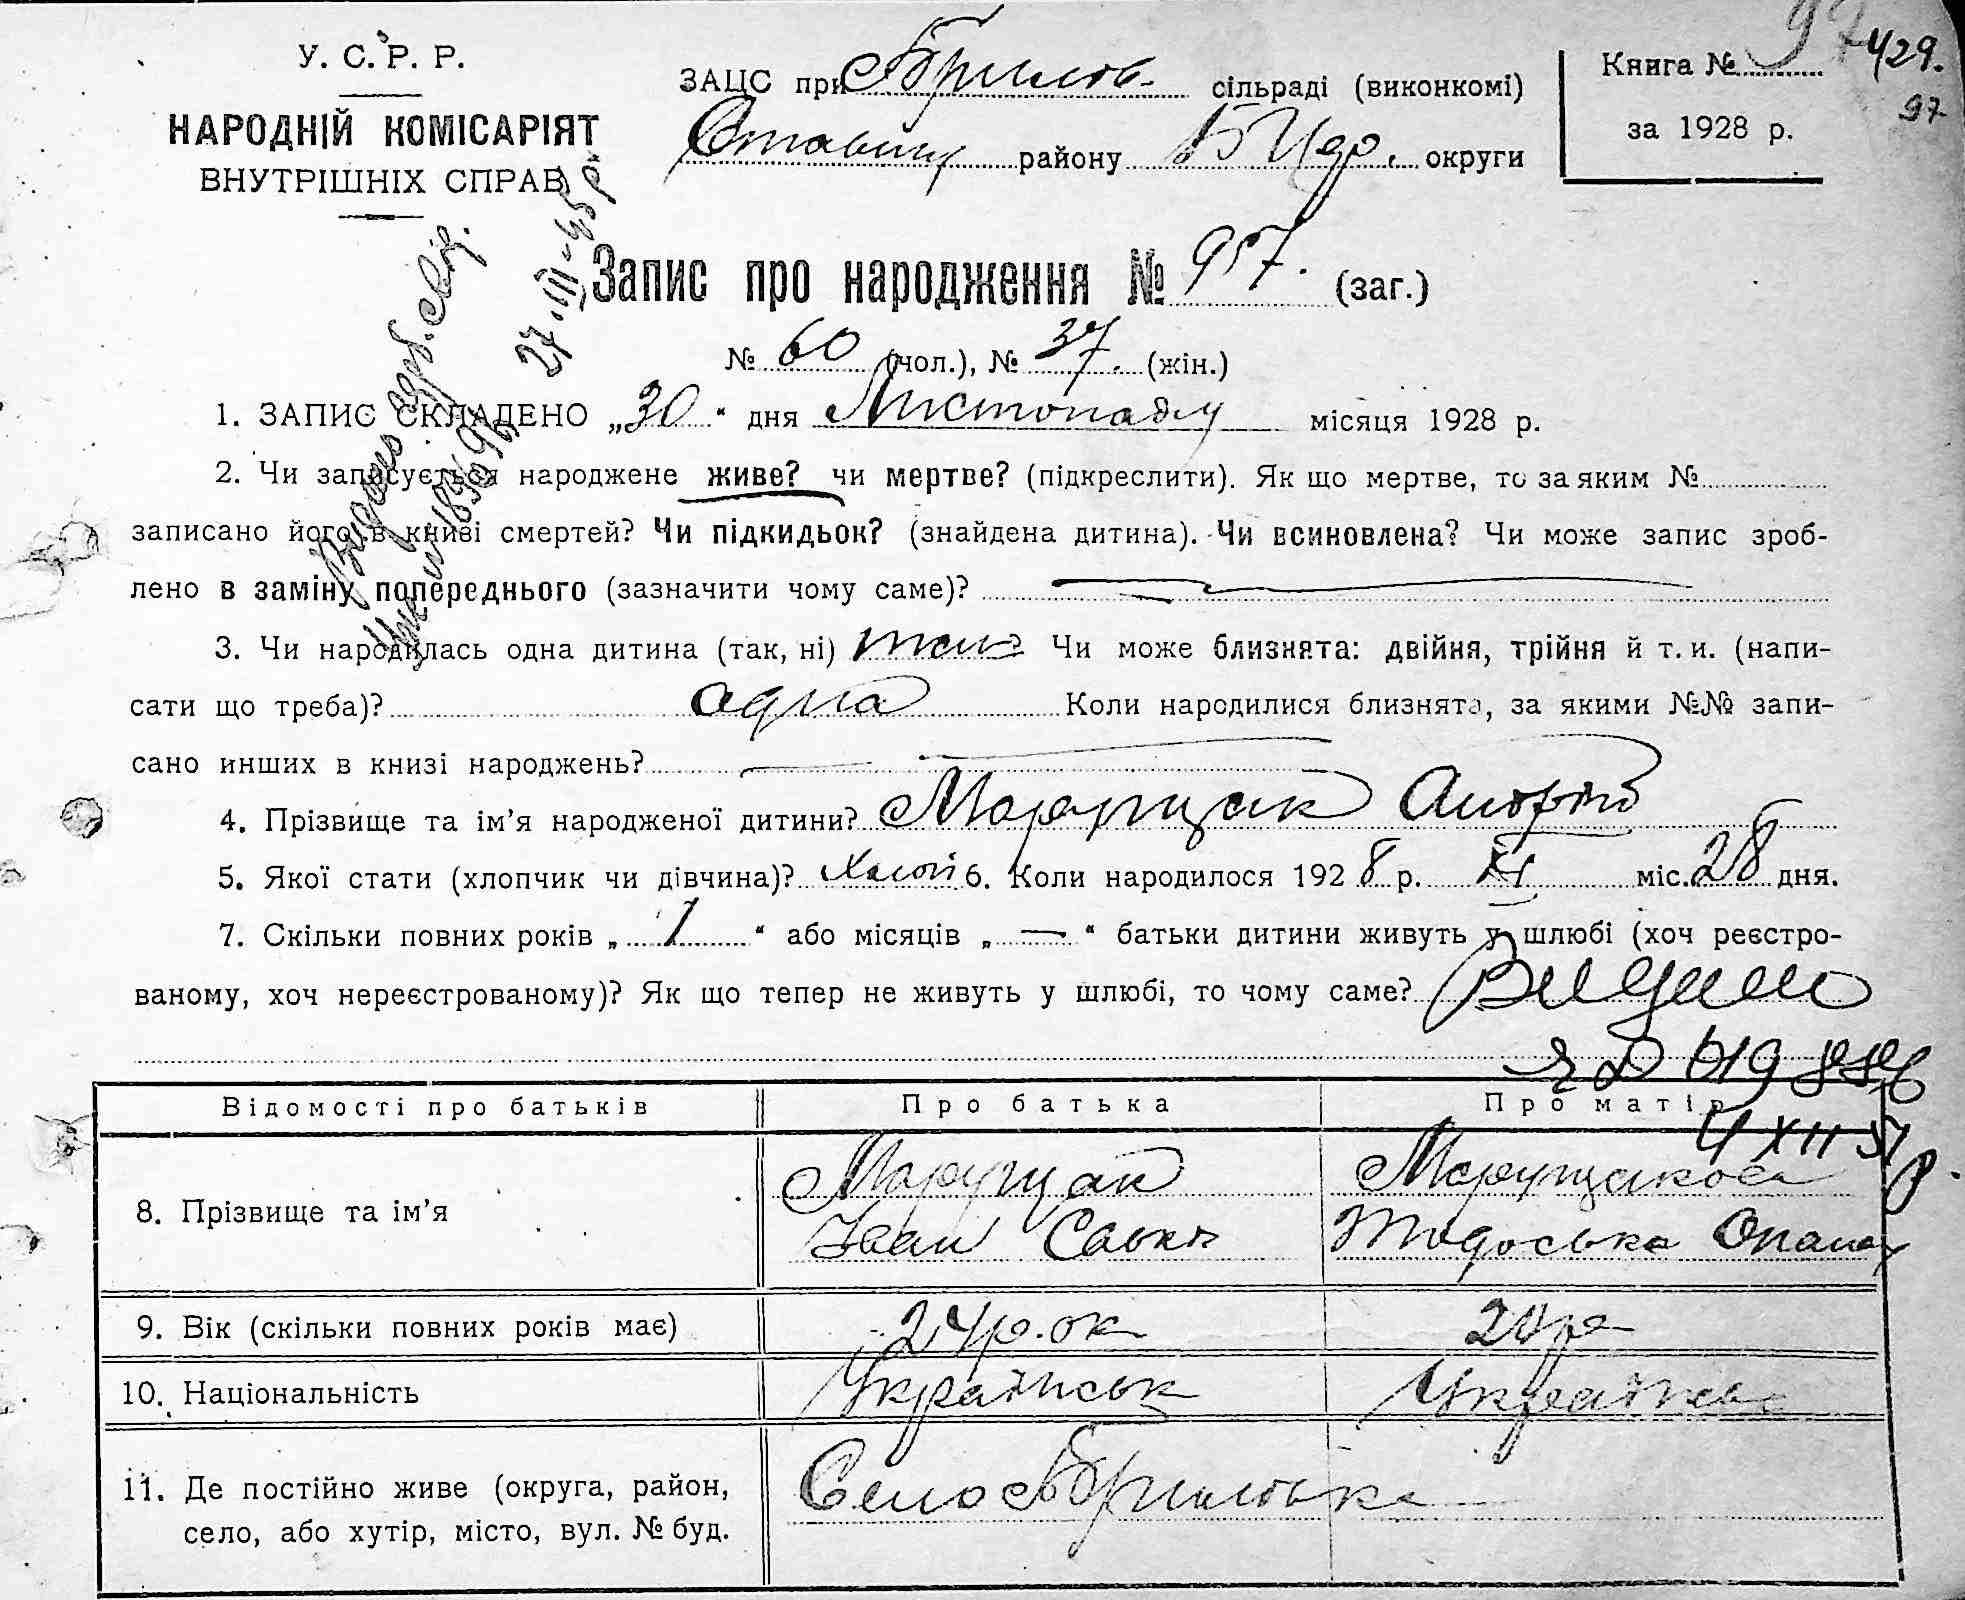 У. С. Р. Р.
НАРОДНІЙ КОМІСАРІЯТ
ВНУТРІШНІХ СПРАВ
ЗАЦС при сільраді (виконкомі)
району Б Ц округи
Книга № 97
за 1928 р.
429.
97
27.III-45 р.
Видано
Запис про народження № 957. (заг.)
№ 60 (чол.), № 37. (жін.)
1. ЗАПИС СКЛАДЕНО „30“ дня Листопаду місяця 1928 р.
2. Чи записується народжене живе? чи мертве? (підкреслити). Як що мертве, то за яким №
записано його в книзі смертей? Чи підкидьок? (знайдена дитина). Чи всиновлена? Чи може запис зроб-
лено в заміну попереднього (зазначити чому саме)? —
3. Чи народилась одна дитина (так, ні) так Чи може близнята: двійня, трійня й т. и. (напи-
сати що треба)? одна Коли народилися близнята, за якими №№ запи-
сано инших в книзі народжень? —
4. Прізвище та ім’я народженої дитини? Марущак Андрій
5. Якої стати (хлопчик чи дівчина)? Хлоп 6. Коли народилося 1928 р. XI міс. 28 дня.
7. Скільки повних років „1“ або місяців „—“ батьки дитини живуть у шлюбі (хоч реєстро-
ваному, хоч нереєстрованому)? Як що тепер не живуть у шлюбі, то чому саме?
4 XII 51 р.
Відомості про батьків Про батька Про матір
8. Прізвище та ім’я Марущак Марущакова
Іван Савки Тодоська Опанас
9. Вік (скільки повних років має) 24 р.
10. Національність Українськ Українська
11. Де постійно живе (округа, район, Село
село, або хутір, місто, вул. № буд.